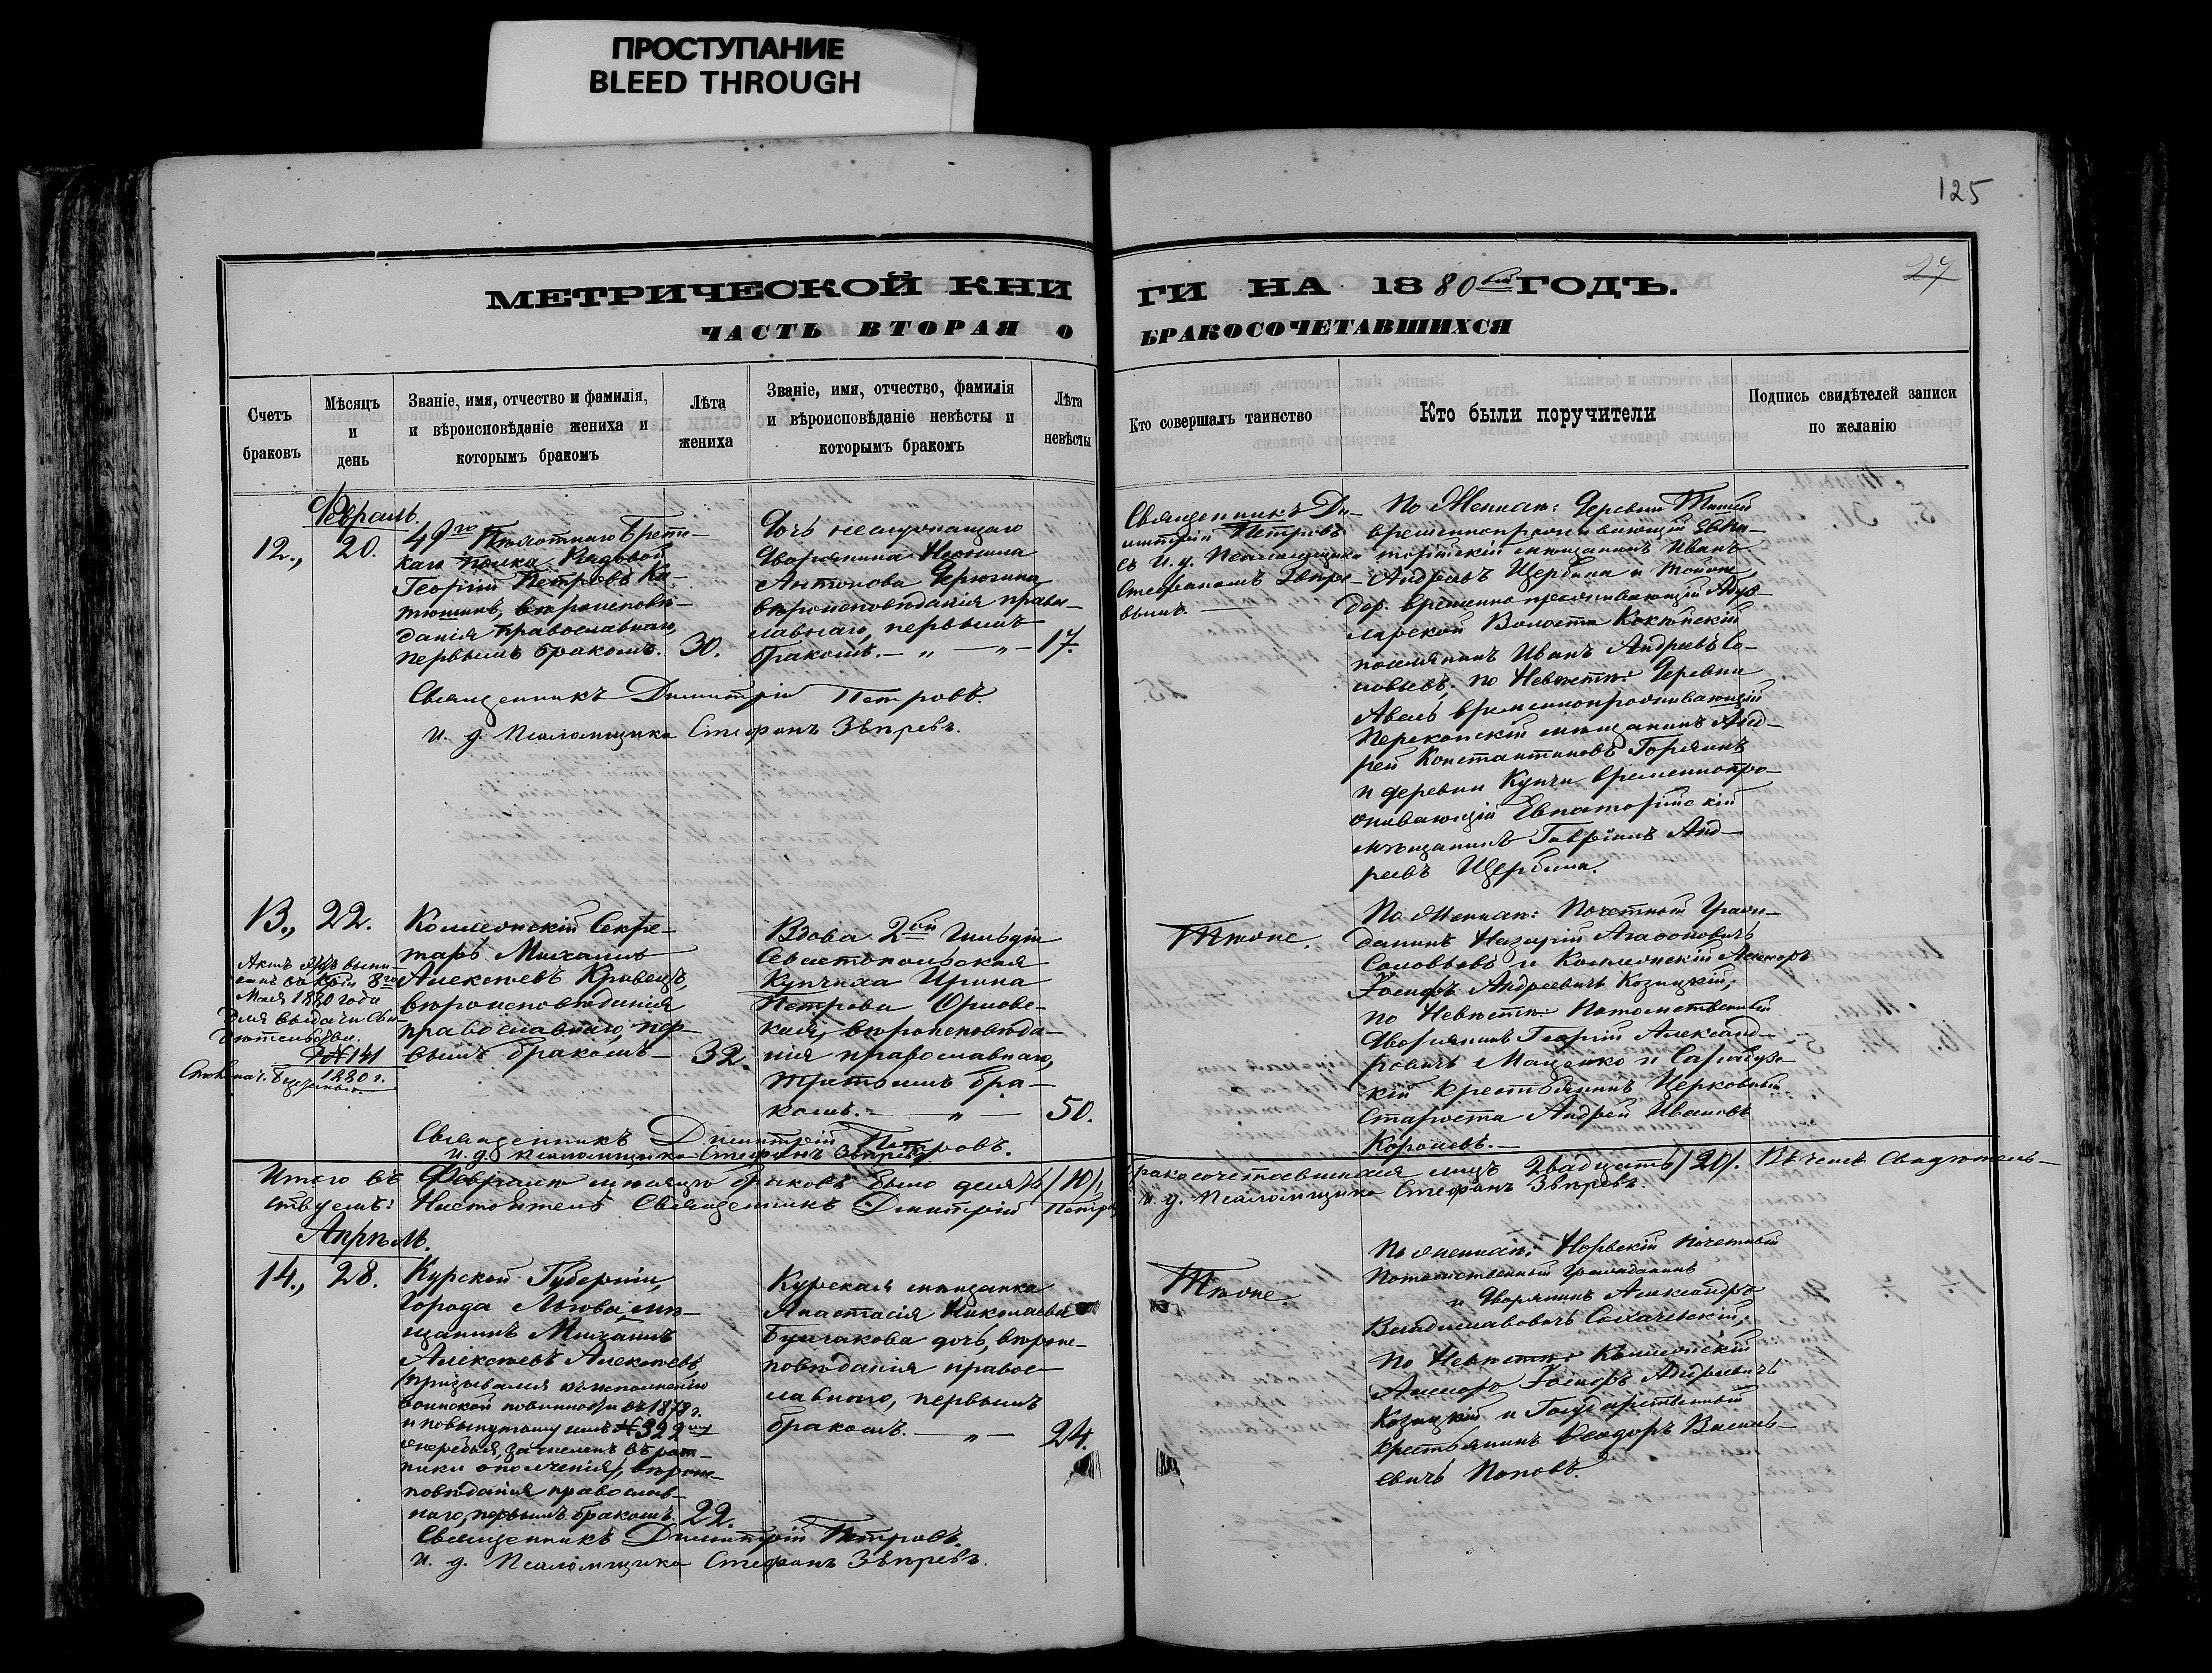 ПРОСТУПАНИЕ
BLEED THROUGH
125
27
МЕТРИЧЕСКОЙ КНИ
ГИ НА 1880 ый ГОДЪ.
ЧАСТЬ ВТОРАЯ О
БРАКОСОЧЕТАВШИХСЯ
Счетъ браковъ
Мѣсяцъ и день
Званіе, имя, отчество и фамилія, и вѣроисповѣданіе жениха и которымъ бракомъ
Лѣта жениха
Званіе, имя, отчество, фамилія и вѣроисповѣданіе невѣсты и которымъ бракомъ
Лѣта невѣсты
Кто совершалъ таинство
Кто были поручители
Подпись свидѣтелей записи по желанію
Февраль.
12., 20.
49го Пѣхотнаго Брест-
каго полка Рядовой
Георгій Петровъ Ка-
вѣроисповѣ-
данія православнаго,
первымъ бракомъ. 30.
Дочь
Дворянина
Антонова
вѣроисповѣданія право-
славнаго, первымъ
бракомъ. — „ — „ — 17.
Священникъ Ди-
митрій Петровъ
съ И. д. Псаломщика
Стефаномъ Звѣре-
вымъ. —
По Женихѣ: Деревни
временнопроживающій Евпа-
торійскій мѣщанинъ Иванъ
Андреевъ Щербина и тойже
дер. временно проживающій
Волости
поселянинъ Иванъ Андреевъ Со-
ловьевъ; по Невѣстѣ: Деревни
временнопроживающій
Перекопскій мѣщанинъ Анд-
рей Константиновъ
и деревни временнопро-
живающій Евпаторійскій
мѣщанинъ Гавріилъ Анд-
реевъ Щербина.
Священникъ Димитрій Петровъ.
И. д. Псаломщика Стефанъ Звѣревъ.
13., 22.
Актъ сей выпи-
санъ 8го
Мая 1880 года
для выдачи Сви-
дѣтельства.
№ 141
1880 г.
Коллежскій Секре-
тарь Михаилъ
Алексѣевъ Кравецъ,
вѣроисповѣданія
православнаго, пер-
вымъ бракомъ — 32.
Вдова 2ой Гильдіи
Севастопольская
Купчиха Ирина
Петрова Орлов-
ская, вѣроисповѣда-
нія православнаго,
третьимъ бра-
комъ. — „ — 50.
Тѣже.
По Женихѣ: Почетный Граж-
данинъ Назарій Агафоновичъ
Соловьевъ и Коллежскій Ассесоръ
Іосифъ Андреевичъ Козицкій;
по Невѣстѣ: Потомственный
Дворянинъ Георгій Александ-
ровичъ Маценко и
крестьянинъ Церковный
Староста Андрей Ивановъ
Королевъ. —
Священникъ Димитрій Петровъ.
И. д. Псаломщика Стефанъ Звѣревъ.
Итого въ Февралѣ мѣсяцѣ браковъ было десять /10/,
бракосочетавшихся лицъ двадцать /20/. Въ чемъ свидѣтель-
ствуемъ: Настоятель Священникъ Димитрій Петровъ
И. д. Псаломщика Стефанъ Звѣревъ.
Апрѣль.
14., 28.
Курской Губерніи,
Города Льгова мѣ-
щанинъ Михаилъ
Алексѣевъ Алексѣевъ,
/призывался къ исполненію
воинской повинности въ 1879 г.
и по вынутому имъ № 322му
жеребья, зачисленъ въ рат-
ники ополченія/, вѣроис-
повѣданія православ-
наго, первымъ бракомъ. 22.
Курская мѣщанка
Анастасія Николаева
Булгакова дочь, вѣроис-
повѣданія право-
славнаго, первымъ
бракомъ. — „ — 24.
Тѣже.
По Женихѣ: Почетный
Потомственный Гражданинъ
и Дворянинъ Александръ
Владиславовичъ
по Невѣстѣ: Коллежскій
Ассесоръ Іосифъ Андреевичъ
Козицкій и Государственный
крестьянинъ Ѳеодоръ Василь-
евичъ Поповъ.
Священникъ Димитрій Петровъ.
И. д. Псаломщика Стефанъ Звѣревъ.